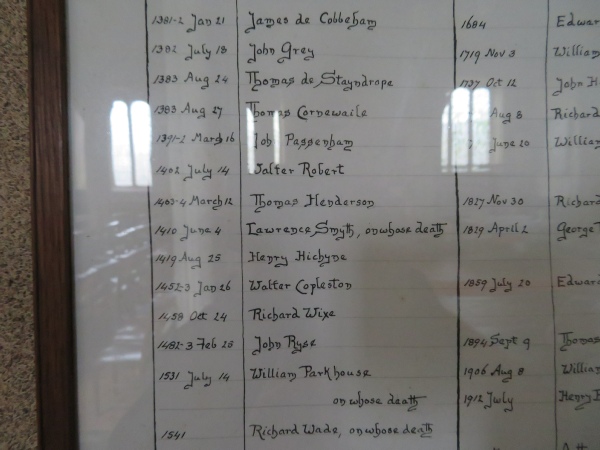 1381-2 Jan 21 James de Cobbeham
1382 July 18 John Grey
1383 Aug 24 Thomas de Stayndrope
1383 Aug 27 Thomas Cornewaile
1391-2 March 16 Joh Passenham
1402 July 14 Walter Robert
1403-4 March 12 Thomas Henderson
1410 June 4 Lawrence Smyth, on whose death
1419 Aug 25 Henry Hichyne
1452-3 Jan 26 Walter Copleston
1458 Oct 24 Richard Wixe
1482-3 Feb 28 John Ryse
1531 July 14 William Parkhouse
on whose death
1541 Richard Wade, on whose death
1684 Edwar
1719 Nov 3 William
1737 Oct 12 John H
Aug 8 Richard
June 20 William
1827 Nov 30 Richard
1829 April 2 George
1859 July 20 Edward
1894 Sept 9 Thomas
1906 Aug 8 William
1912 July Henry